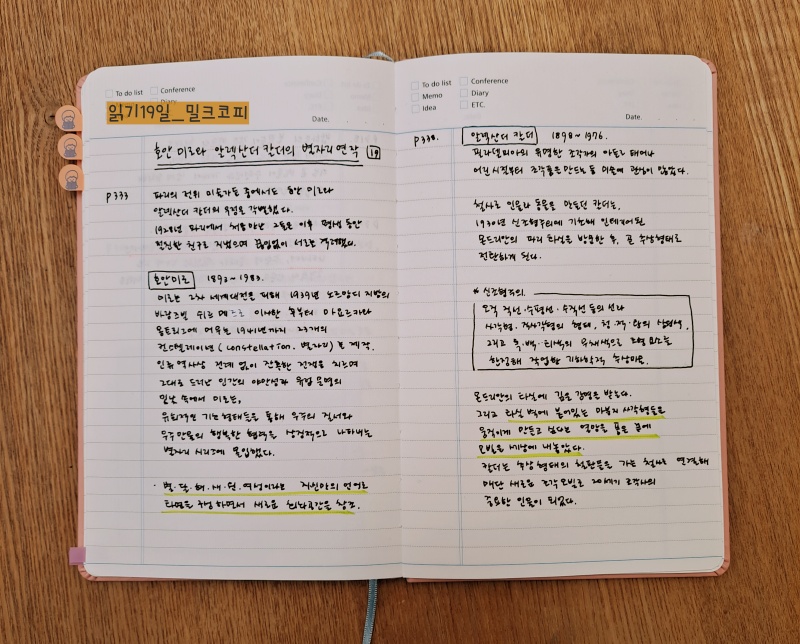 To do list
Conference
Diary
읽기19일_밀크코피
Date.
호안 미로와 알렉산더 칼더의 별자리 연작 19
P333
파리의 전위 미술가들 중에서도 호안 미로와
알렉산더 칼더의 우정은 각별했다.
1928년 파리에서 처음 만난 그들은 이후 평생 동안
친한 친구로 지냈으며 끊임없이 서로를 격려했다.
호안미로 1893~1983.
미로는 2차 세계대전을 피해 1939년 노르망디 지방의
이사한 후부터 마요르카와
머무른 1941년까지 23개의
컨스텔레이션(constellation. 별자리)을 제작.
인류 역사상 전례 없이 잔혹한 전쟁을 치르며
그대로 드러난 인간의 야만성과 유럽 문명의
민낯 속에서 미로는,
유희적인 기호 형태들을 통해 우주의 질서와
우주 만물의 행복한 협력을 상징적으로 나타내는
별자리 시리즈에 몰입했다.
· 별·달·해·새·눈·여성이라는 자신만의 언어로
화면을 구성하면서 새로운 회화공간을 창조.
To do list
Conference
Memo
Diary
Idea
ETC.
Date.
P338.
알렉산더 칼더 1898~1976.
필라델피아의 유명한 조각가의 아들로 태어나
어린 시절부터 조각품을 만드는 등 미술에 관심이 많았다.
철사로 인물과 동물을 만들던 칼더는,
1930년 신조형주의에 기초해 인테리어된
몬드리안의 파리 화실을 방문한 후, 곧 추상형태로
전환하게 된다.
* 신조형주의.
오직 직선·수평선·수직선 등의 선과
사각형·직사각형의 형태, 청·적·황의 삼원색,
그리고 흑·백·회색의 무채색으로 조형 요소를
한정해 작업한 기하학적 추상미술.
몬드리안의 화실에 깊은 감명을 받는다.
그리고 화실 벽에 붙어있는 마분지 사각형들을
움직이게 만들고 싶다는 열망을 품은 끝에
모빌을 세상에 내놓았다.
칼더는 추상 형태의 철판들을 가는 철사로 연결해
매단 새로운 조각 모빌로 20세기 조각사의
중요한 인물이 되었다.